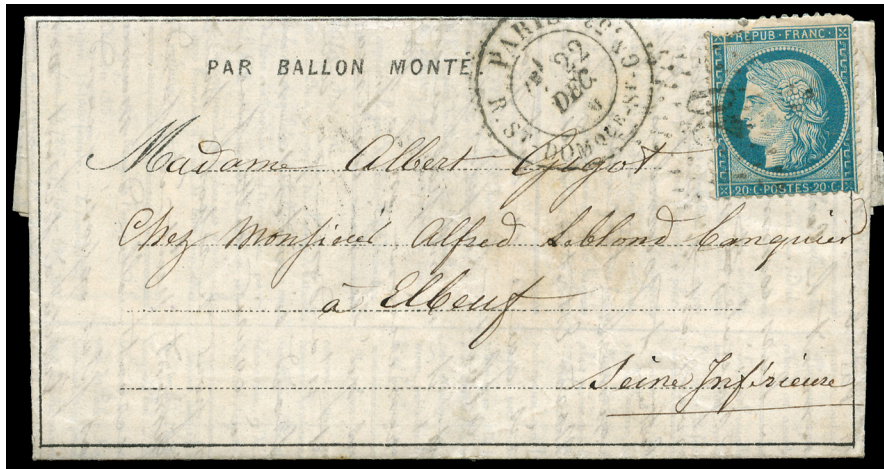 PAR BALLON MONTÉ.
PARIS
R. ST DOMQUE-ST-G.
22
DEC.
RÉPUB. FRANC.
20·C·POSTES 20·C·
Madame Albert Gigot
Chez Monsieur Alfred Leblond banquier
à Elbeuf
Seine Inférieure